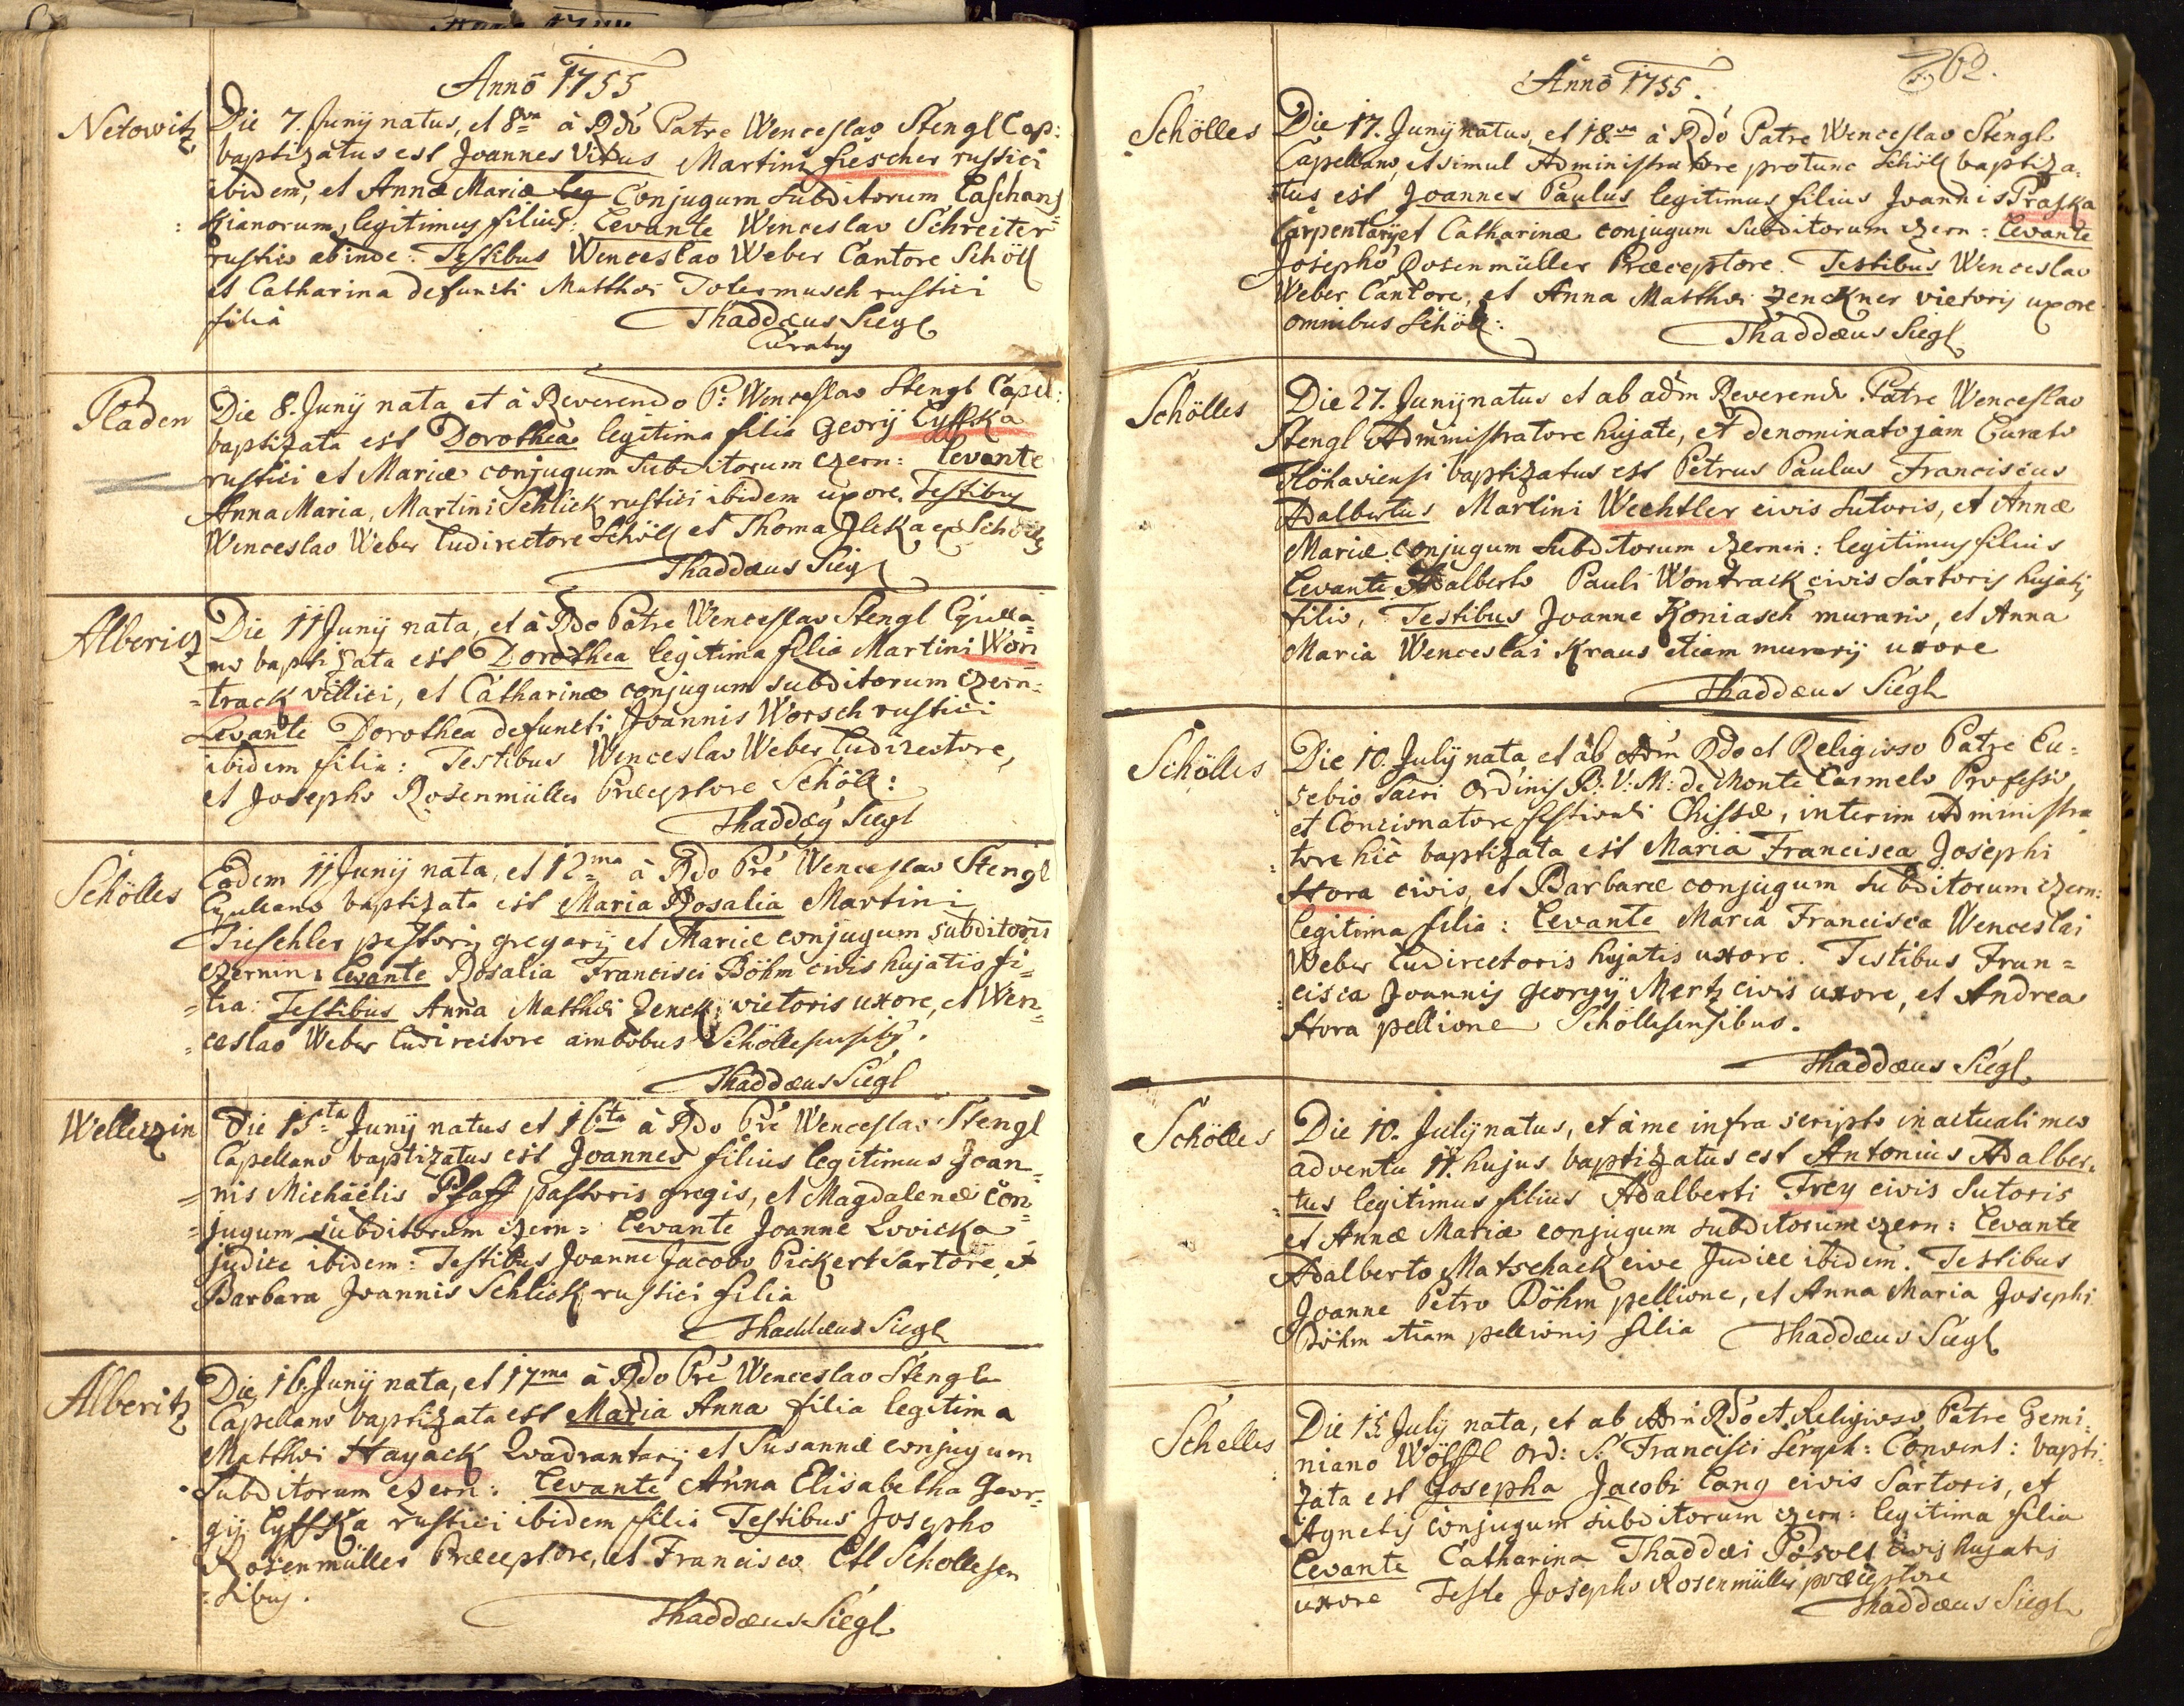 Anno 1755
Netowitz
Die 7. Junij natus, et 8va à Rdo Patre Wenceslao Stengl Cap:
baptizatus est Joannes Vitus Martini Fiescher rustici
ibidem, et Annæ Mariæ leg Conjugum subditorum Caschans
kianorum, legitimus filius: Levante Winceslao Schreiter
rustico abinde: Testibus Wenceslao Weber Cantore Schöll
et Catharina defuncti Matthæi Totermusch rustici
filia
Thaddæus Siegl
Curatus
Pladen
Die 8. Junij nata et à Reverendo P: Wenceslao Stengl Capel:
baptizata est Dorothea legitima filia Georij Lyffka
rustici et Mariæ conjugum subditorum czern: Levante
Anna Maria, Martini Schlick rustici ibidem uxore, Testibus
Wenceslao Weber Ludirectore Schöll et Thoma Jlcka ex Schölles
Thaddæus Siegl
Alberitz
Die 11 Junij nata, et à Rdo Patre Wenceslao Stengl Cpulla=
no baptizata est Dorothea legitima filia Martini Won
=track villici, et Catharinæ conjugum subditorum czern:
Levante Dorothea defuncti Joannis Worsch rustici
ibidem filia: Testibus Wenceslao Weber Ludirectore,
et Josepho Rosenmüller Præceptore Schöll:
Thaddæg Siegl
Schölles
Eodem 11 Junij nata, et 12ma à Rdo Pre Wenceslao Stengl
Cpulano baptizata est Maria Rosalia Martini
Tieschler pastoris gregarij et Mariæ conjugum subditorū
czernin: Levante Rosalia Francisci Böhm civis hujatis fi=
=lia: Testibus Anna Matthæi Zenck vietoris uxore, et Wen=
=ceslao Weber Ludirectore ambobus Schöllesensibg.
Thaddæus Siegl
Wellerzin
Die 15ta Junij natus et 16ta à Rdo Pre Wenceslao Stengl
Capellano baptizatus est Joannes filius legitimus Joan=
=nis Michäelis Pfaff pastoris gregis, et Magdalenæ Con=
=jugum subditorum czern: Levante Joanne Lovicka
judice ibidem: Testibus Joanne Jacobo Pickert Sartore, et
Barbara Joannis Schlick rustici filia
Thaddæus Siegl
Alberitz
Die 16. Junij nata, et 17ma à Rdo Pre Wenceslao Stengl
Capellano baptizata est Maria Anna filia legitima
Matthæi Hayack Quadrantarij et Susannæ conjugum
Subditorum czern: Levante Anna Elisabetha Geor=
gij Lyffka rustici ibidem filia Testibus Josepho
Rosenmüller Præceptore, et Francisco Etl Schollesen
:sibus.
Thaddæus Siegl
Anno 1755.
262.
Schölles
Die 17. Junij natus, et 18va à Rdo Patre Wenceslao Stengl
Capellano, et simul Administratore protunc Schöll baptiza=
=tus est Joannes Paulus legitimus filius Joannis Praska
Carpentarij et Catharinæ conjugum subditorum czern: Levante
Josepho Rosenmüller Præceptore. Testibus Wenceslao
Weber Cantore, et Anna Matthæi Zenckner vietorij uxore
omnibus Schöll:
Thaddæus Siegl
Schölles
Die 27. Junij natus et ab adm Reverendo Patre Wenceslao
Stengl Administratore hujate, et denominato jam Curato
Flöhaviensi baptizatus est Petrus Paulus Franciscus
Adalbertus Martini Wechtler civis Sutoris, et Annæ
Mariæ conjugum subditorum czernin: legitimus filius
Levante Adalberto Pauli Wontrack civis Sartoris hujatis
filio, Testibus Joanne Koniasch murario, et Anna
Maria Wenceslai Kraus etiam murarij uxore
Thaddæus Siegl
Schölles
Die 10. Julij nata, et ab Adm Rdo et Religioso Patre Eu=
sebio Sacri Ordinis B: V: M: de Monte Carmelo Professo
et Concionatore festivali Chissæ, interim Administra
tore hic baptizata est Maria Francisca Josephi
Hora civis, et Barbaræ conjugum subditorum czern:
legitima filia: Levante Maria Francisca Wenceslai
Weber Ludirectoris hujatis uxore. Testibus Fran=
cisca Joannis Georgij Mertz civis uxore, et Andrea
Hora pellione Schöllesensibus.
Thaddæus Siegl
Schölles
Die 10. Julij natus, et à me infra scripto in actuali meo
adventu 11. hujus baptizatus est Antonius Adalber=
=tus legitimus filius Adalberti Frey civis Sutoris
et Annæ Mariæ conjugum subditorum czern: Levante
Adalberto Matschack cive Judice ibidem. Testibus
Joanne Petro Böhm pellione, et Anna Maria Josephi
Böhm etiam pellionis filia
Thaddæus Siegl
Schelles
Die 15. July nata, et ab Adm Rdo et Religioso Patre Gemi=
niano Wölffl Ord: S: Francisci Seraph: Convent: bapti=
zata est Josepha Jacobi Lang civis Sartoris, et
Agnetis conjugum subditorum czern: legitima filia
Levante Catharina Thaddæi civis hujatis
uxore Teste Josepho Rosenmüller præceptore
Thaddæus Siegl